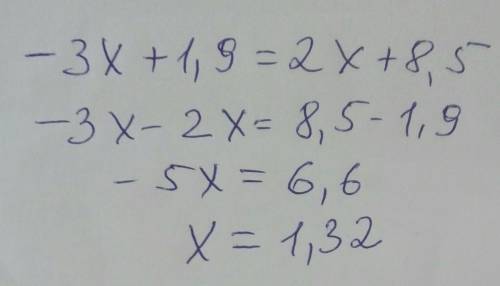 -3x+1,9=2x+8,5
-3x-2x=8,5-1,9
-5x=6,6
x=1,32